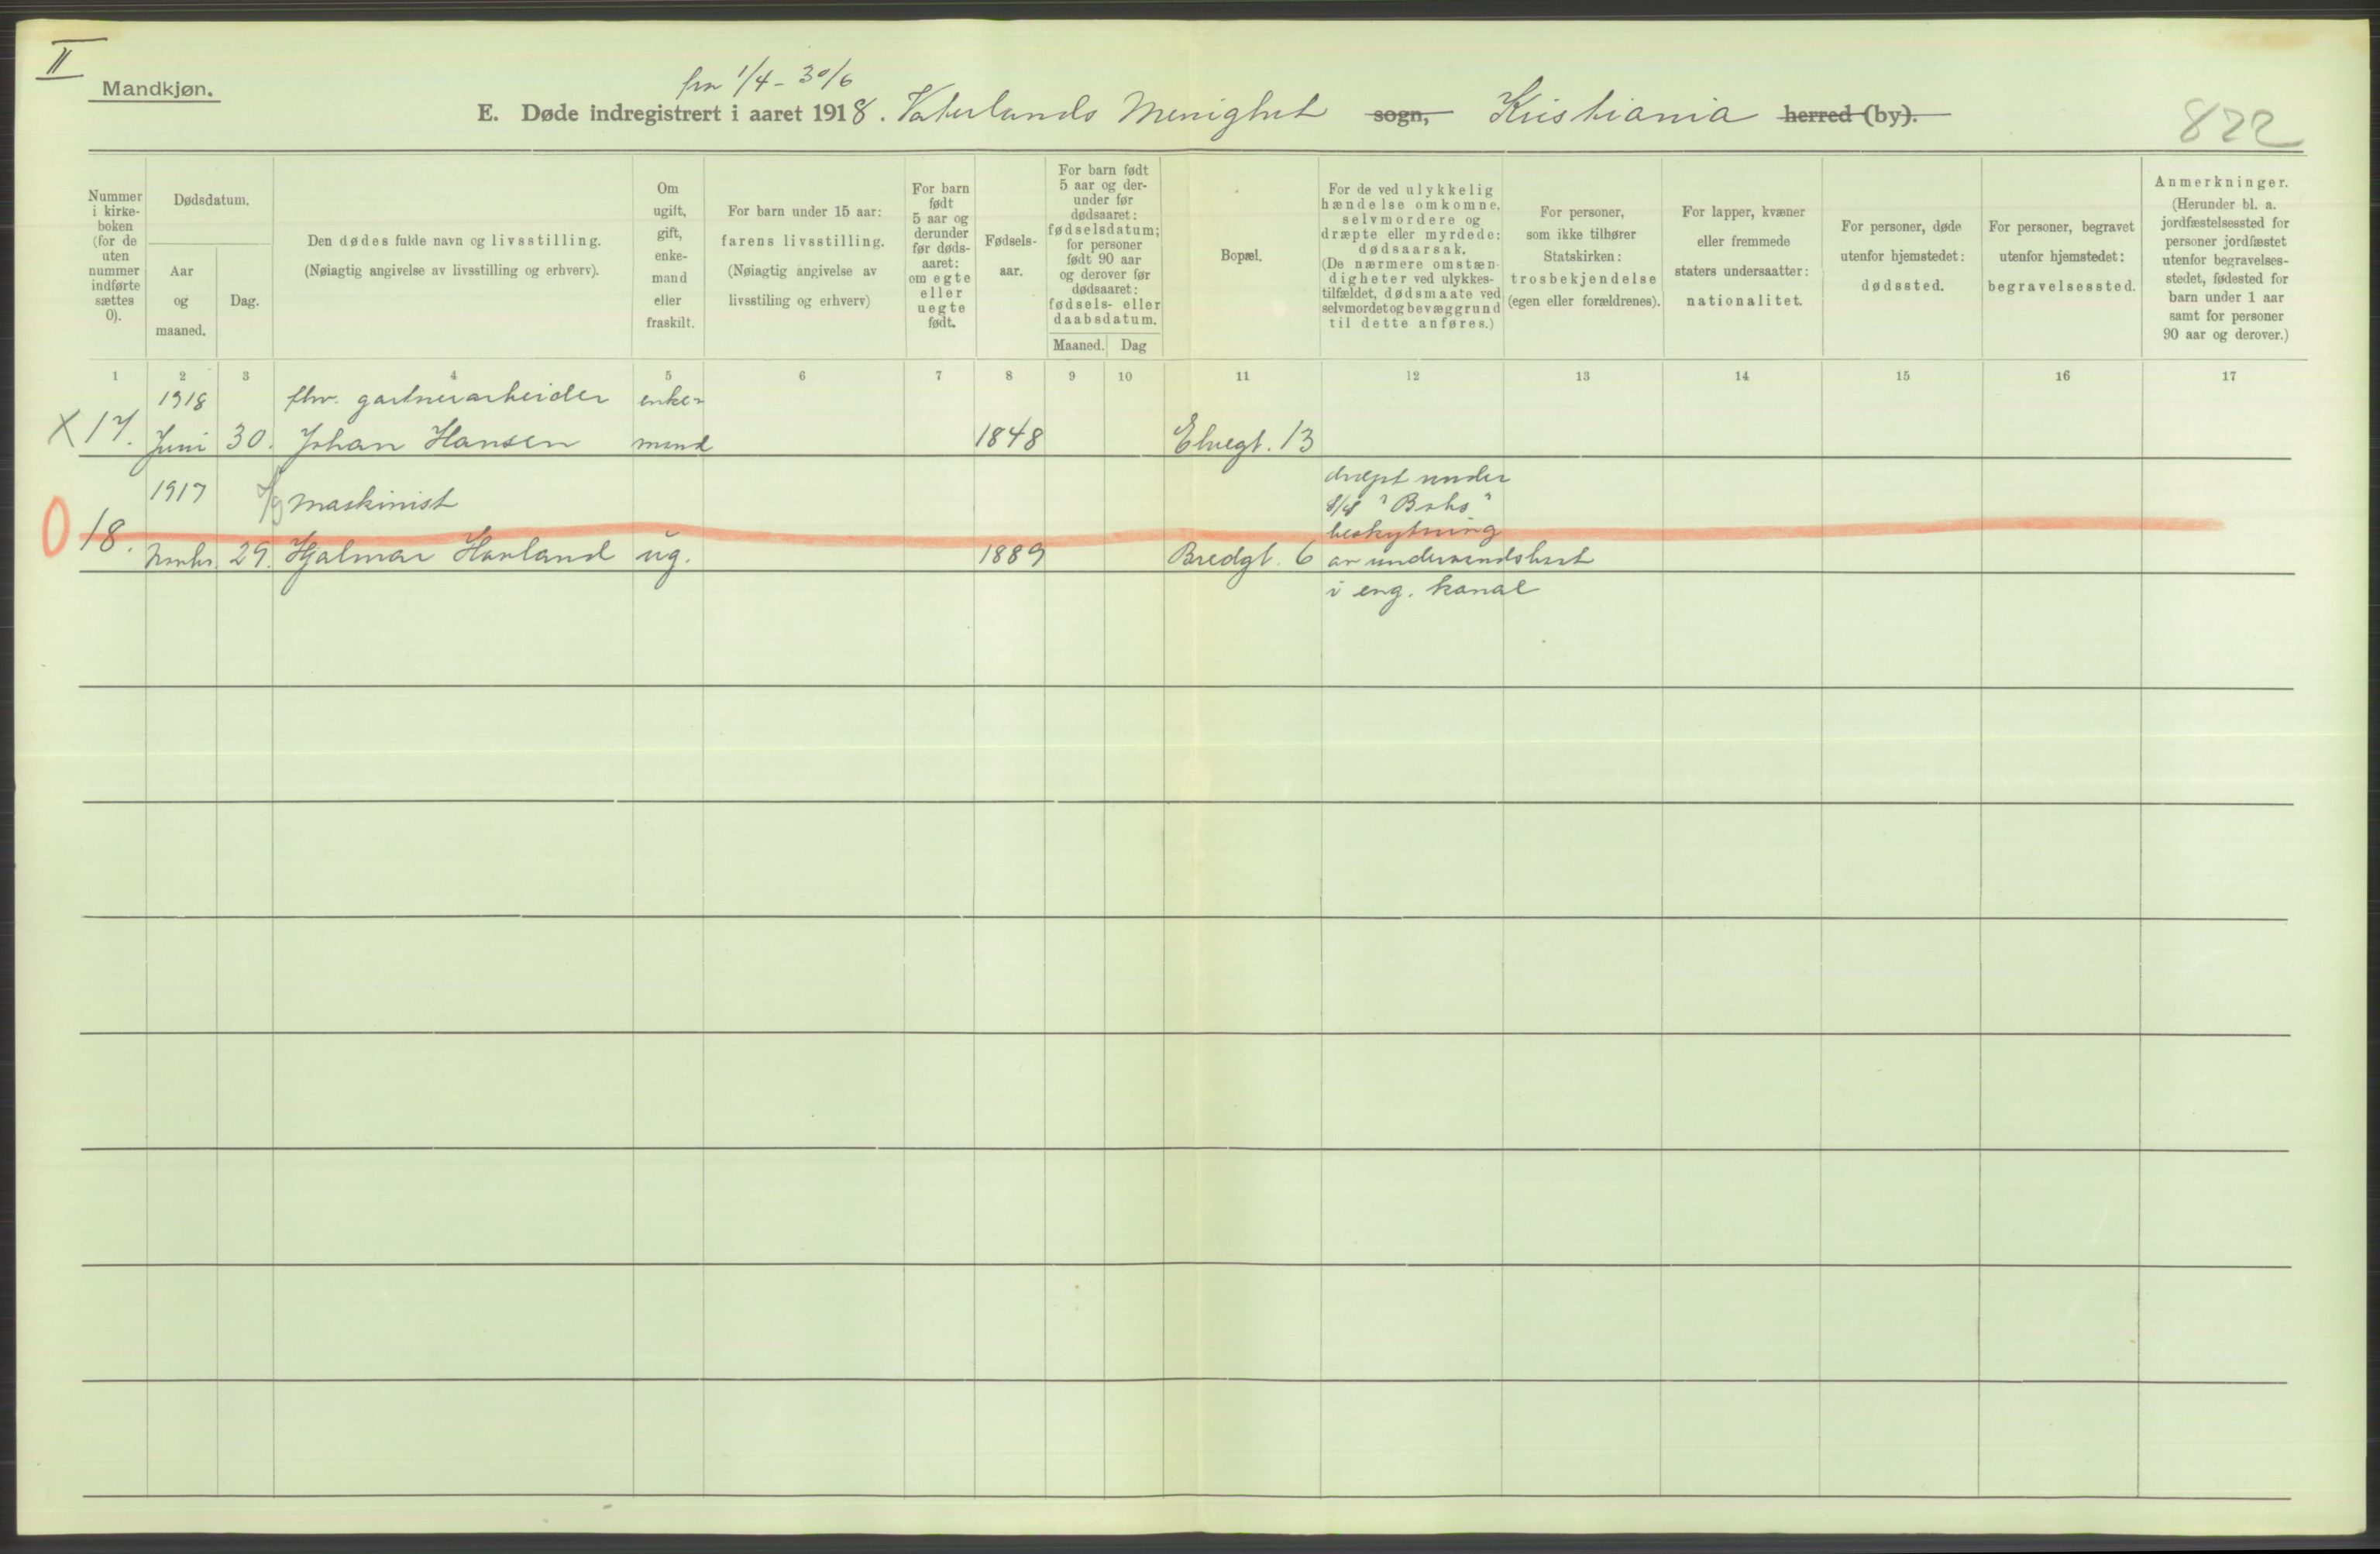 II
Mandkjøn.
fra 1/4 - 30/6
E. Døde indregistrert i aaret 1918. Vaterlands Menighet sogn, Kristiania herred (by).
822
Nummer i kirke-boken (for de uten nummer indførte sættes 0).
Dødsdatum.
Aar og maaned.
Dag.
Den dødes fulde navn og livsstilling.
(Nøiagtig angivelse av livsstilling og erhverv).
Om ugift, gift, enke-mand eller fraskilt.
For barn under 15 aar:
farens livsstilling.
(Nøiagtig angivelse av livsstiling og erhverv)
For barn født 5 aar og derunder før døds-aaret: om egte eller uegte født.
Fødsels-aar.
For barn født 5 aar og der-under før dødsaaret: fødselsdatum; for personer født 90 aar og derover før dødsaaret: fødsels- eller daabsdatum.
Maaned. Dag
Bopæl.
For de ved ulykkelig hændelse omkomne, selvmordere og dræpte eller myrdede: dødsaarsak.
(De nærmere omstæn-digheter ved ulykkes-tilfældet, dødsmaate ved selvmordet og bevæggrund til dette anføres.)
For personer, som ikke tilhører Statskirken: trosbekjendelse (egen eller forældrenes).
For lapper, kvæner eller fremmede staters undersaatter: nationalitet.
For personer, døde utenfor hjemstedet: dødssted.
For personer, begravet utenfor hjemstedet: begravelsessted.
Anmerkninger.
(Herunder bl. a. jordfæstelsessted for personer jordfæstet utenfor begravelses-stedet, fødested for barn under 1 aar samt for personer 90 aar og derover.)
1 2 3 4 5 6 7 8 9 10 11 12 13 14 15 16 17
1918 fhv. gartnerarbeider enke-
X 17. Juni 30. Johan Hansen mand 1848 Elvegt. 13
1917 maskinist
dræpt under
S/S "Bohs"
beskytning
0 18. Novbr. 29. Hjalmar Havland ug. 1889 Bredgt. 6 av undervandsbaat
i eng. kanal